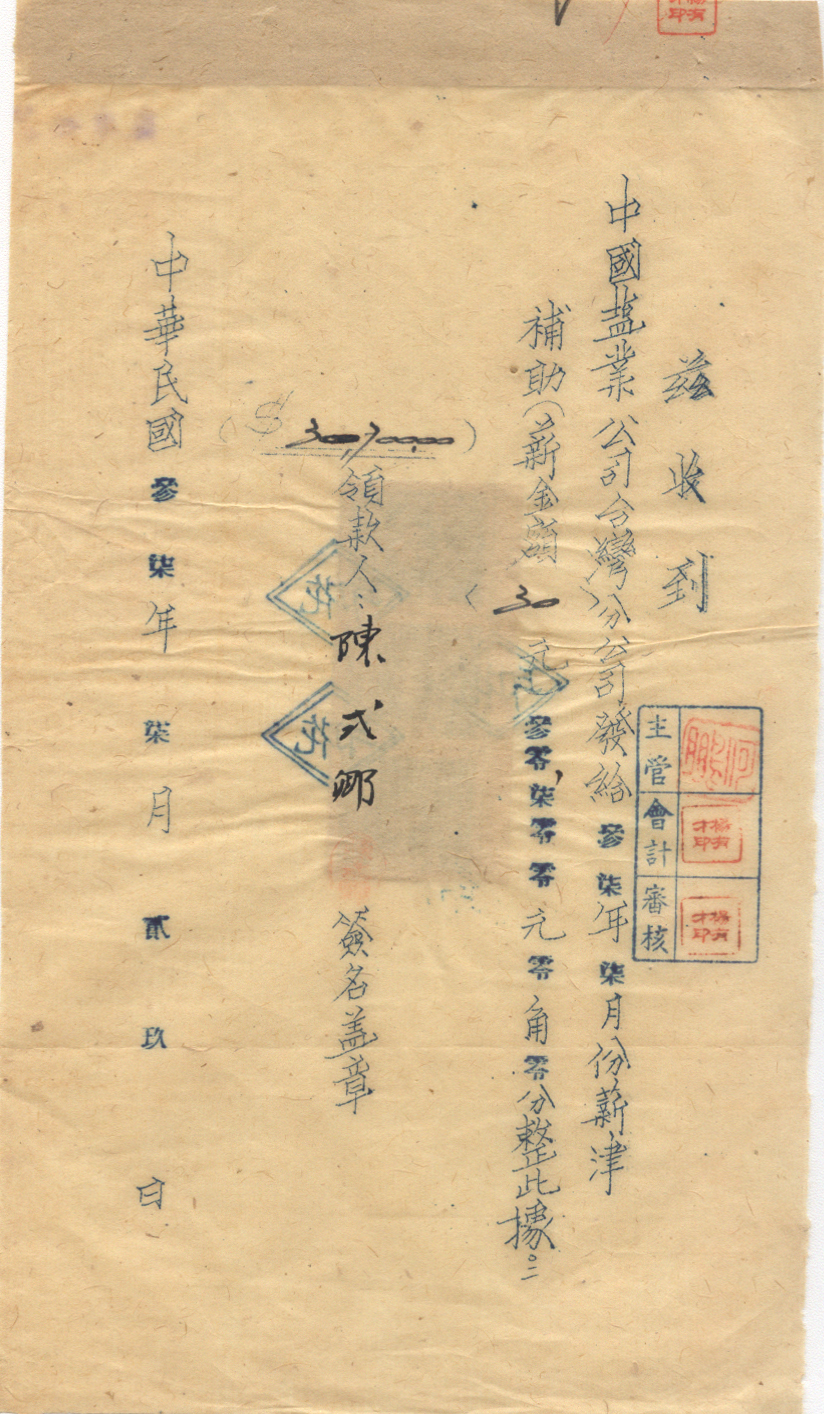 茲收到
中國盐業公司台灣分公司發給參柒年柒月份薪津
補助(薪金額30元)參零,柒零零元零角零分整此據。
($30,700.00)
領款人:陳式鄉
簽名盖章
中華民國參柒年柒月貳玖日
主管
會計
審核
楊有
才印
楊有
才印
花
花